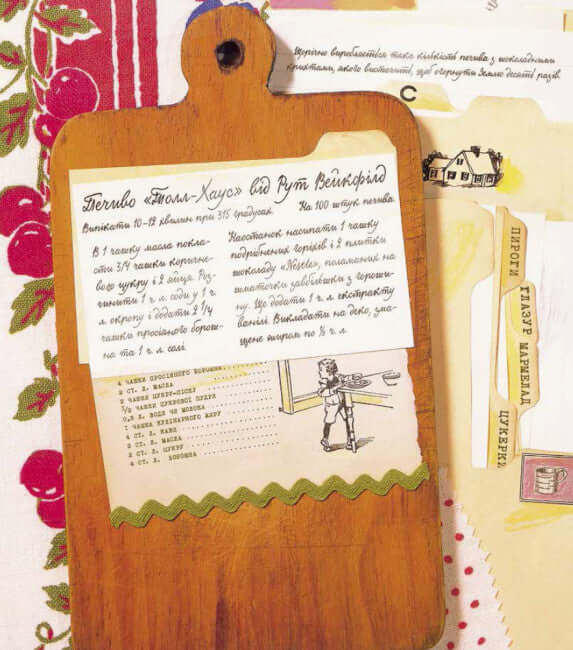 Щорічно виробляється така кількість печива з шоколадними
крихтами, якого вистачить, щоб обгорнути Землю десять разів.
С
Печиво «Толл-Хаус» від Рут Вейкфілд
Випікати 10-12 хвилин при 315 градусах
На 100 штук печива
В 1 чашку масла покла-
сти 3/4 чашки коричне-
вого цукру і 2 яйця. Роз-
чинити 1 ч. л. соди у 1 ч.
л. окропу і додати 2 1/4
чашки просіяного борош-
на та 1 ч. л. солі.
Наостанок насипати 1 чашку
подрібнених горіхів і 2 плитки
шоколаду «Nestle», поламаних на
шматочки завбільшки з гороши-
ну. Ще додати 1 ч. л. екстракту
ванілі. Викладати на деко, зма-
щене жиром по ½ ч. л.
4 ЧАШКИ ПРОСІЯНОГО БОРОШНА
2 СТ. Л. МАСЛА
2 ЧАШКИ ЦУКРУ-ПІСКУ
1/2 ЧАШКИ ЦУКРОВОЇ ПУДРИ
0,5 Л. ВОДИ ЧИ МОЛОКА
1 ЧАШКА КУЛІНАРНОГО ЖИРУ
4 СТ. Л. КАВИ
2 СТ. Л. МАСЛА
2 СТ. Л. ЦУКРУ
4 СТ. Л. БОРОШНА
ПИРОГИ
ГЛАЗУР
МАРМЕЛАД
ЦУКЕРКИ